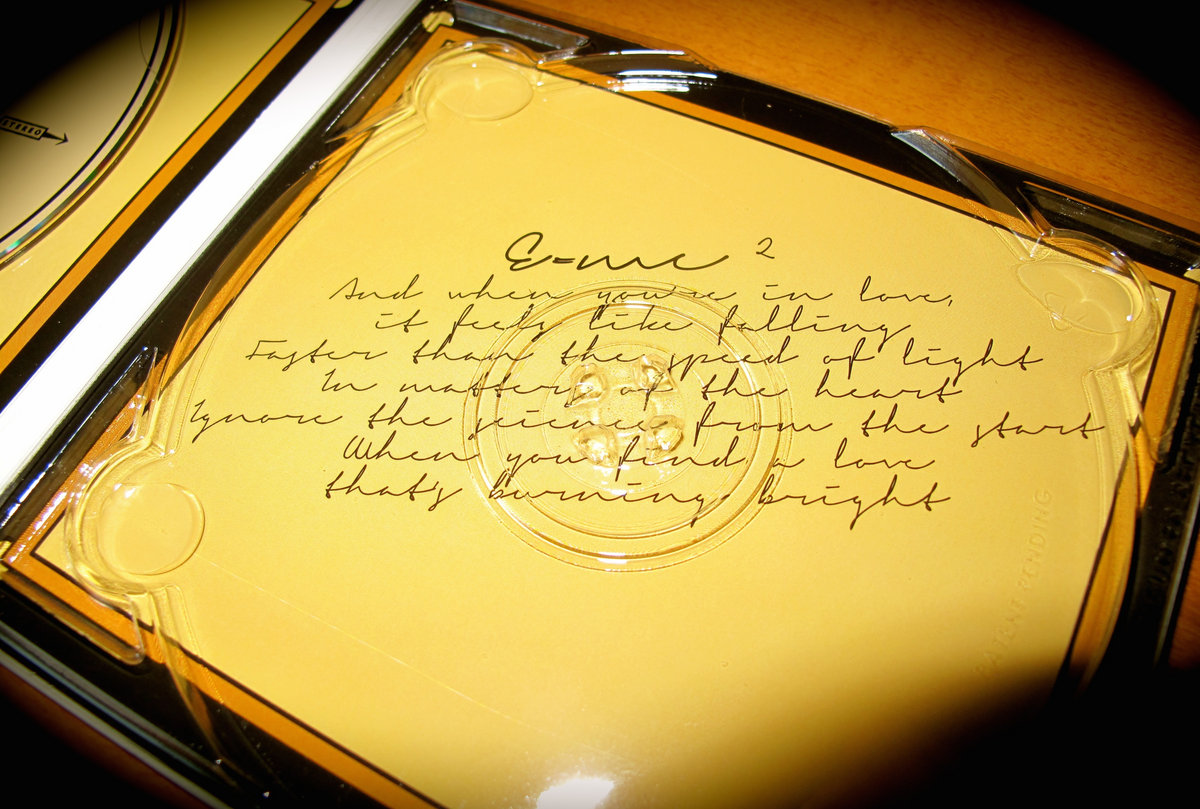 STEREO
E=mc²
And when you're in love,
it feels like falling
Faster than the speed of light
In matters of the heart
Ignore the science from the start
When you find a love
that's burning bright
PATENT PENDING